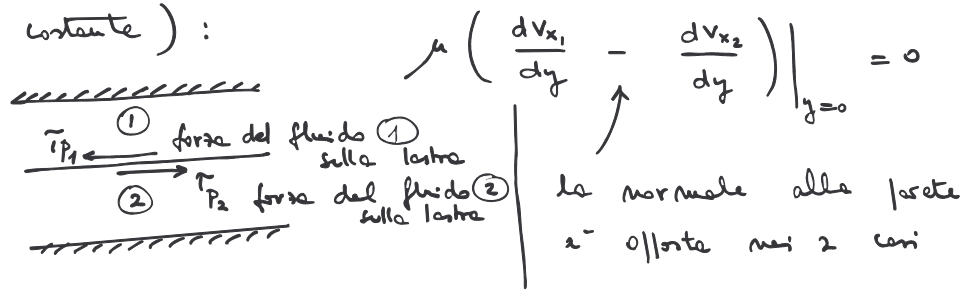 costante ) :
μ ( dVx₁/dy - dVx₂/dy ) |y=0 = 0
①
τP₁ forza del fluido ①
sulla lastra
② τP₂ forza del fluido ②
sulla lastra
la normale alla parete
è opposta nei 2 casi